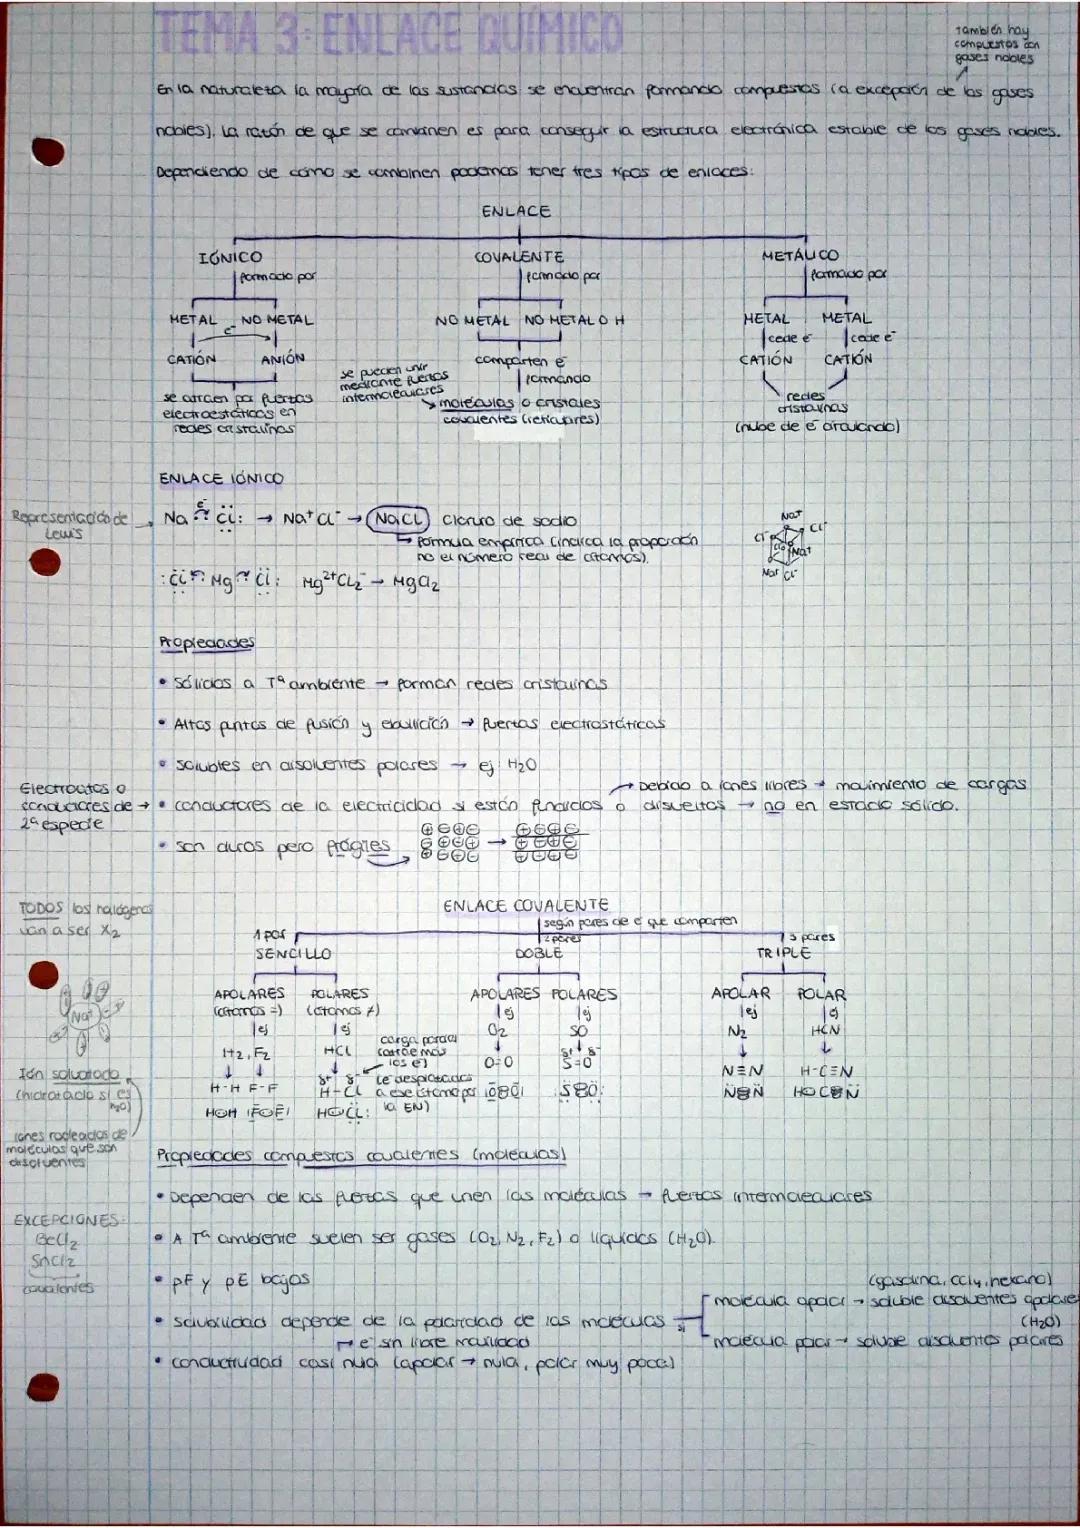 TEMA 3: ENLACE QUÍMICO
También hay
compuestos con
gases nobles
En la naturaleza la mayoría de las sustancias se encuentran formando compuestos (a excepción de los gases
nobles). La razón de que se combinen es para conseguir la estructura electrónica estable de los gases nobles.
Dependiendo de cómo se combinen podemos tener tres tipos de enlaces:
ENLACE
IÓNICO COVALENTE METÁLICO
formado por formado por formado por
METAL NO METAL NO METAL NO METAL O H METAL METAL
e⁻ cede e⁻ cede e⁻
CATIÓN ANIÓN comparten e⁻ CATIÓN CATIÓN
formando
se pueden unir
mediante fuerzas
intermoleculares
se atraen por fuerzas
electroestáticas en
redes cristalinas
moléculas o cristales
covalentes (reticulares)
redes
cristalinas
(nube de e⁻ circulando)
ENLACE IÓNICO
Representación de
Lewis
Na e⁻ Cl: → Na⁺Cl⁻ → NaCl Cloruro de sodio
→ fórmula empírica (indica la proporción
no el número real de átomos).
Na⁺ Cl⁻
Cl⁻ Na⁺
Na⁺ Cl⁻
:Cl Mg Cl: Mg²⁺Cl₂⁻ → MgCl₂
Propiedades
• Sólidos a Tª ambiente → forman redes cristalinas
• Altos puntos de fusión y ebullición → fuerzas electrostáticas
• Solubles en disolventes polares → ej: H₂O
Electrolitos o
conductores de →
2ª especie
→ Debido a iones libres → movimiento de cargas
• conductores de la electricidad si están fundidos o disueltos → no en estado sólido.
• Son duros pero frágiles
ENLACE COVALENTE
TODOS los halógenos
van a ser X₂
según pares de e⁻ que comparten
1 par 2 pares 3 pares
SENCILLO DOBLE TRIPLE
APOLARES POLARES APOLARES POLARES APOLAR POLAR
(átomos =) (átomos ≠)
ej ej ej ej ej ej
H₂, F₂ HCl O₂ SO N₂ HCN
carga parcial
(atrae más
los e⁻)
(e⁻ desplazados
a ese átomo por
la EN)
δ⁺ δ⁻ δ⁺ δ⁻
H-H F-F H-Cl O=O S=O N≡N H-C≡N
Na⁺
Ión solvatado
(hidratado si es
H₂O)
iones rodeados de
moléculas que son
disolventes
Propiedades compuestos covalentes (moléculas)
• Dependen de las fuerzas que unen las moléculas → fuerzas intermoleculares
EXCEPCIONES:
BeCl₂
SnCl₂
covalentes
• A Tª ambiente suelen ser gases (O₂, N₂, F₂) o líquidos (H₂O).
• pF y pE bajos
(gasolina, CCl₄, hexano)
molécula apolar → soluble disolventes apolares
• Solubilidad depende de la polaridad de las moléculas si
(H₂O)
molécula polar → soluble disolventes polares
→ e⁻ sin libre movilidad
• conductividad casi nula (apolar → nula, polar muy poca)